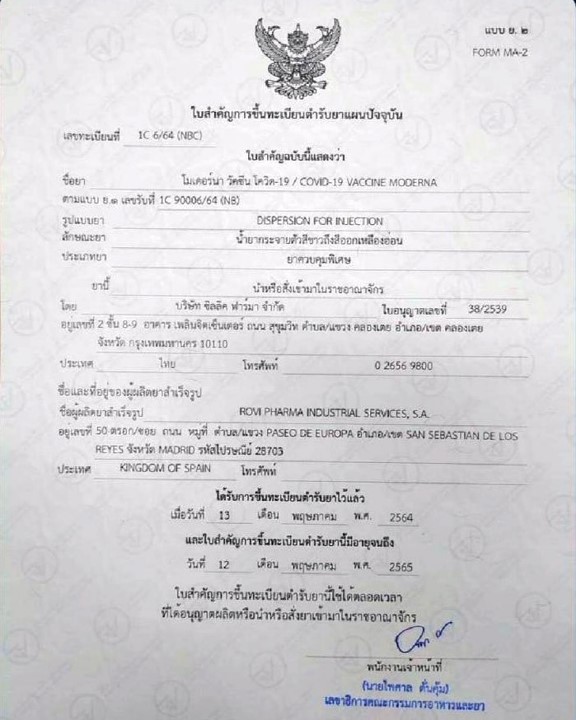 แบบ ย. ๒
FORM MA-2
ใบสำคัญการขึ้นทะเบียนตำรับยาแผนปัจจุบัน
เลขทะเบียนที่ 1C 6/64 (NBC)
ใบสำคัญฉบับนี้แสดงว่า
ชื่อยา โมเดอร์นา วัคซีน โควิด-19 / COVID-19 VACCINE MODERNA
ตามแบบ ย.๑ เลขรับที่ 1C 90006/64 (NB)
รูปแบบยา DISPERSION FOR INJECTION
ลักษณะยา น้ำยากระจายตัวสีขาวถึงสีออกเหลืองอ่อน
ประเภทยา ยาควบคุมพิเศษ
ยานี้ นำหรือสั่งเข้ามาในราชอาณาจักร
โดย บริษัท ซิลลิค ฟาร์มา จำกัด ใบอนุญาตเลขที่ 38/2539
อยู่เลขที่ 2 ชั้น 8-9 อาคาร เพลินจิตเซ็นเตอร์ ถนน สุขุมวิท ตำบล/แขวง คลองเตย อำเภอ/เขต คลองเตย
จังหวัด กรุงเทพมหานคร 10110
ประเทศ ไทย โทรศัพท์ 0 2656 9800
ชื่อและที่อยู่ของผู้ผลิตยาสำเร็จรูป
ชื่อผู้ผลิตยาสำเร็จรูป ROVI PHARMA INDUSTRIAL SERVICES, S.A.
อยู่เลขที่ 50 ตรอก/ซอย ถนน หมู่ที่ ตำบล/แขวง PASEO DE EUROPA อำเภอ/เขต SAN SEBASTIAN DE LOS
REYES จังหวัด MADRID รหัสไปรษณีย์ 28703
ประเทศ KINGDOM OF SPAIN โทรศัพท์
ได้รับการขึ้นทะเบียนตำรับยาไว้แล้ว
เมื่อวันที่ 13 เดือน พฤษภาคม พ.ศ. 2564
และใบสำคัญการขึ้นทะเบียนตำรับยานี้มีอายุจนถึง
วันที่ 12 เดือน พฤษภาคม พ.ศ. 2565
ใบสำคัญการขึ้นทะเบียนตำรับยานี้ใช้ได้ตลอดเวลา
ที่ได้อนุญาตผลิตหรือนำหรือสั่งยาเข้ามาในราชอาณาจักร
พนักงานเจ้าหน้าที่
(นายไพศาล ดั่นคุ้ม)
เลขาธิการคณะกรรมการอาหารและยา